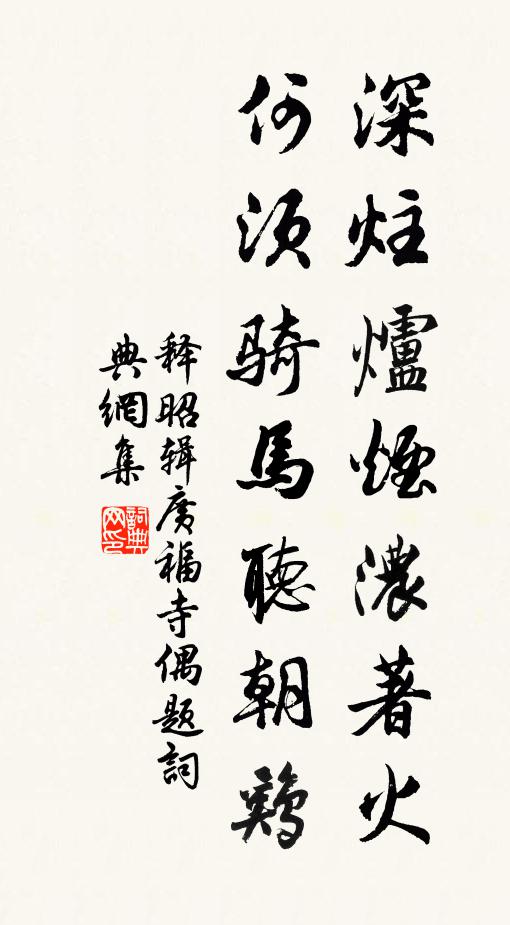 深炷爐煙濃著火
何須騎馬聽朝鷄
释昭辑廣福寺偶題詞
典網集
詞典
网印